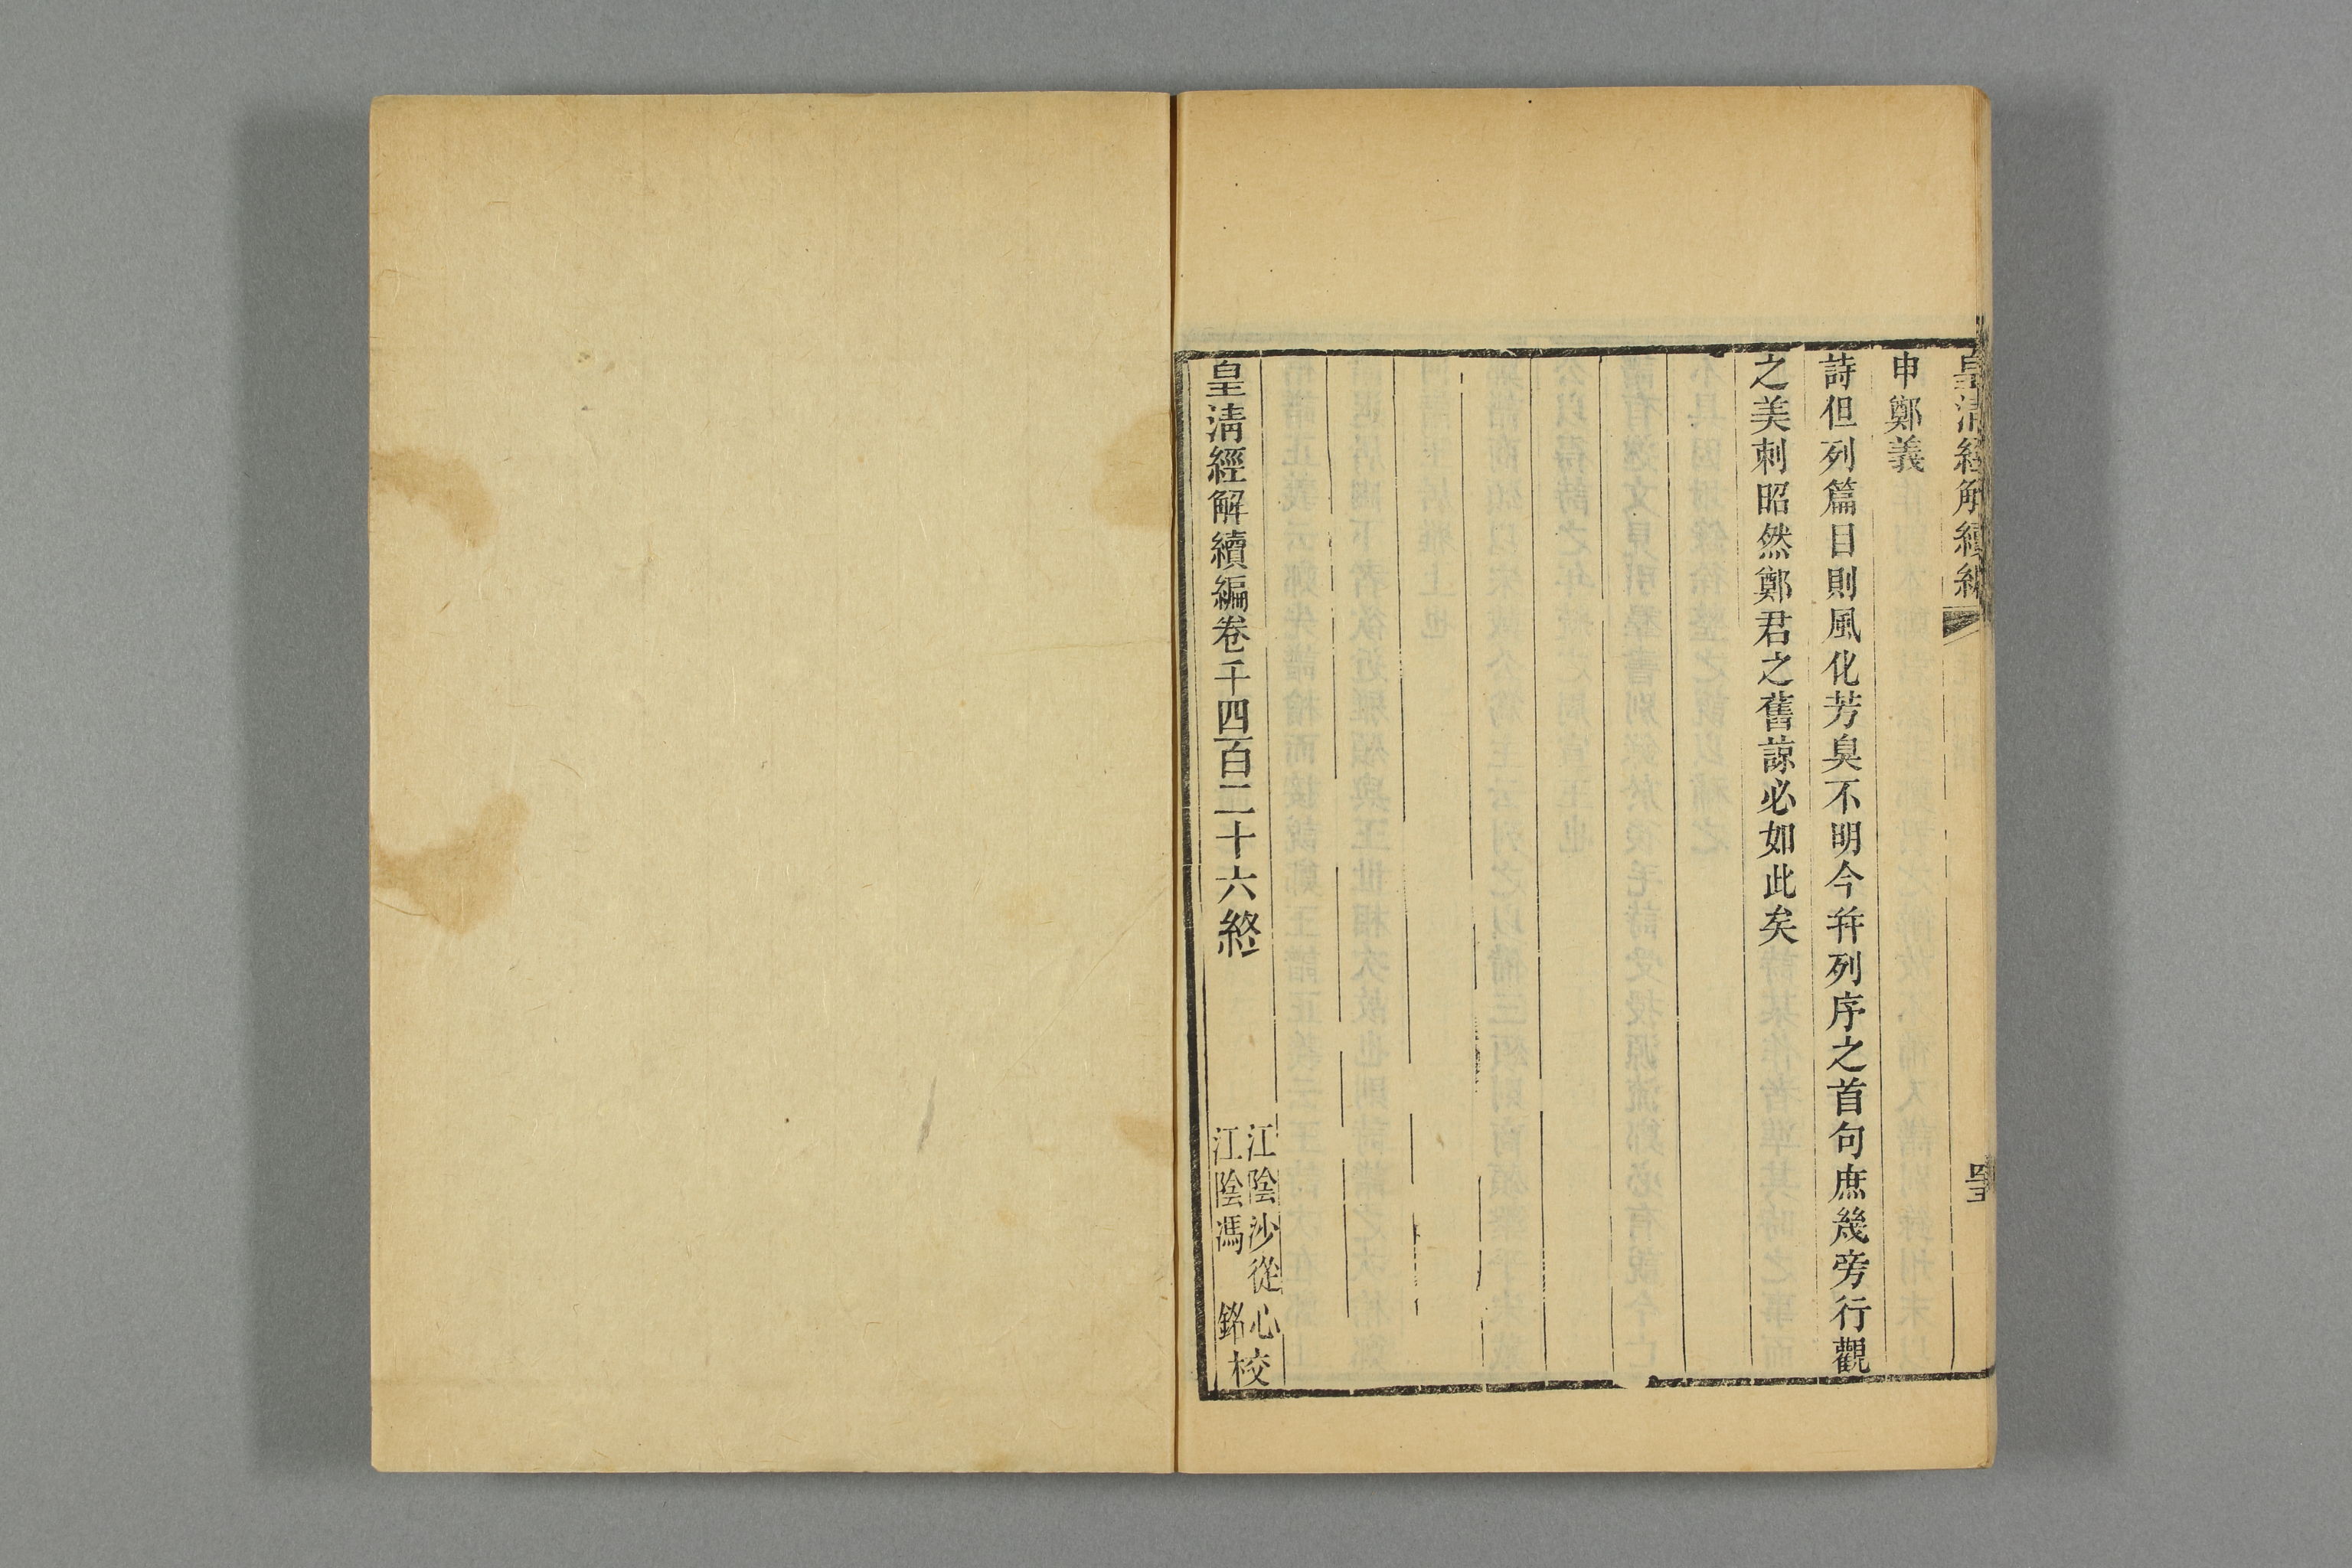 皇清經解續編
申鄭義
詩但列篇目則風化芳臭不明今幷列序之首句庶幾旁行觀
之美刺昭然鄭君之舊諒必如此矣
皇清經解續編卷千四百二十六終
江陰沙從心
江陰馮銘
校